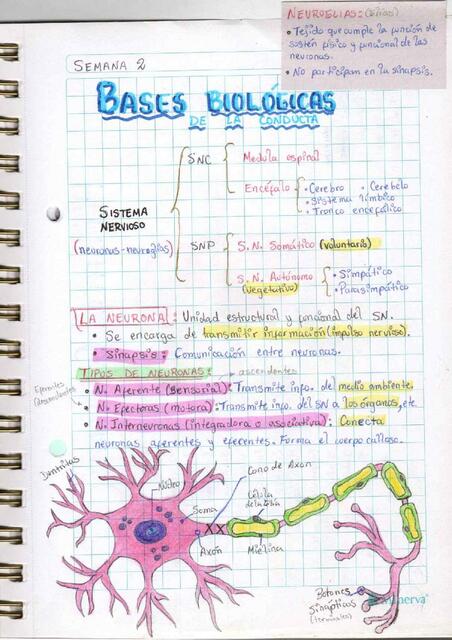 NEUROGLIAS: (Glías)
• Tejido que cumple la función de
sostén físico y funcional de las
neuronas.
• No participan en la sinapsis.
SEMANA 2
BASES BIOLÓGICAS
DE LA CONDUCTA
SISTEMA
NERVIOSO
(neuronas-neuroglias)
SNC
Medula espinal
Encéfalo
• Cerebro • Cerebelo
• Sistema límbico
• Tronco encefálico
SNP
S.N. Somático (voluntario)
S.N. Autónomo
(vegetativo)
• Simpático
• Parasimpático
LA NEURONA: Unidad estructural y funcional del SN.
• Se encarga de transmitir información (impulso nervioso).
• Sinapsis: Comunicación entre neuronas.
TIPOS DE NEURONAS: ascendentes
• N. Aferente (sensorial): Transmite info. del medio ambiente.
Eferentes
(descendentes)
• N. Efectoras (motora): Transmite info. del SN a los órganos, etc.
• N. Interneuronas (integradora o asociativa): Conecta
neuronas aferentes y eferentes. Forma el cuerpo calloso.
Dentritas
Núcleo
Cono de Axón
Soma
Célula
Axón
Mielina
Botones
Sinápticos
(terminales)
Minerva